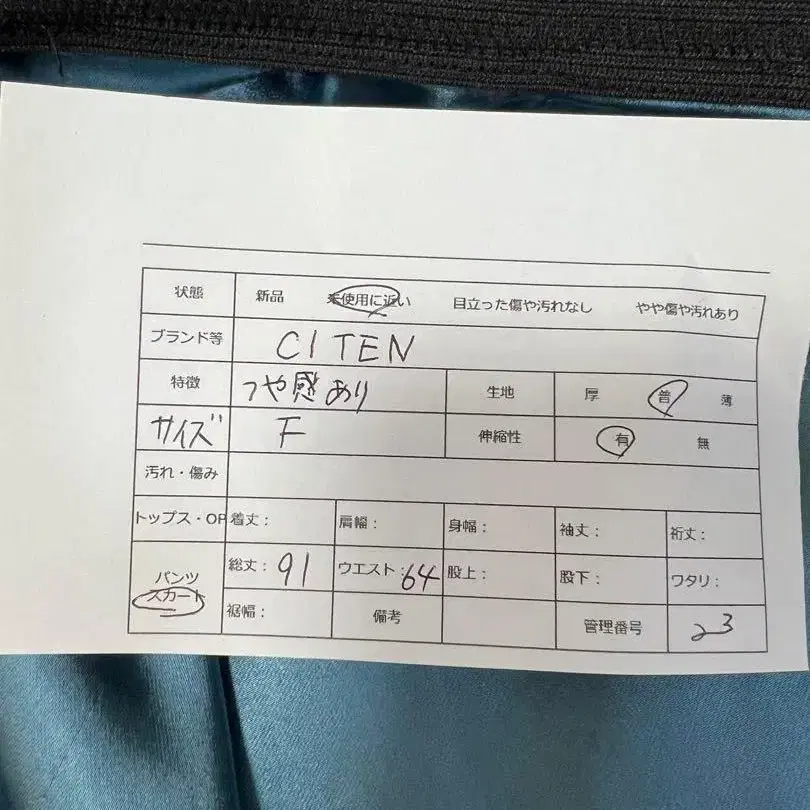 状態 新品 未使用に近い 目立った傷や汚れなし やや傷や汚れあり
ブランド等 CITEN
特徴 つや感あり 生地 厚 普 薄
サイズ F 伸縮性 有 無
汚れ・傷み
トップス・OP 着丈: 肩幅: 身幅: 袖丈: 裄丈:
パンツ 総丈:91 ウエスト:64 股上: 股下: ワタリ:
スカート 裾幅: 備考 管理番号 23